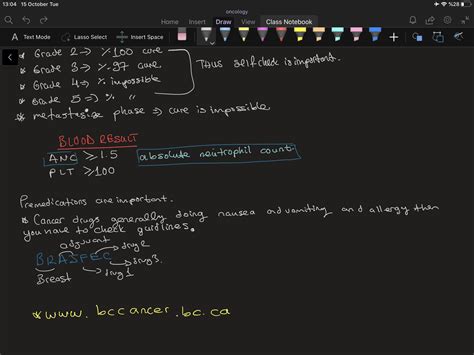 13:04 15 October Tue
oncology
%28
Home Insert Draw View Class Notebook
Text Mode Lasso Select Insert Space
* Grade 2 → %100 cure
* Grade 3 → %97 cure
Thus self check is important.
* Grade 4 → % impossible
* Grade 5 → % "
* metastasize phase → cure is impossible
BLOOD RESULT
ANC ≥ 1.5 absolute neutrophil count
PLT ≥ 100
Premedications are important.
* Cancer drugs generally doing nausea and vomiting and allergy then
you have to check guidlines.
adjuvant drug 2
BRAJFEC drug 3.
Breast drug 1
* www.bccancer.bc.ca